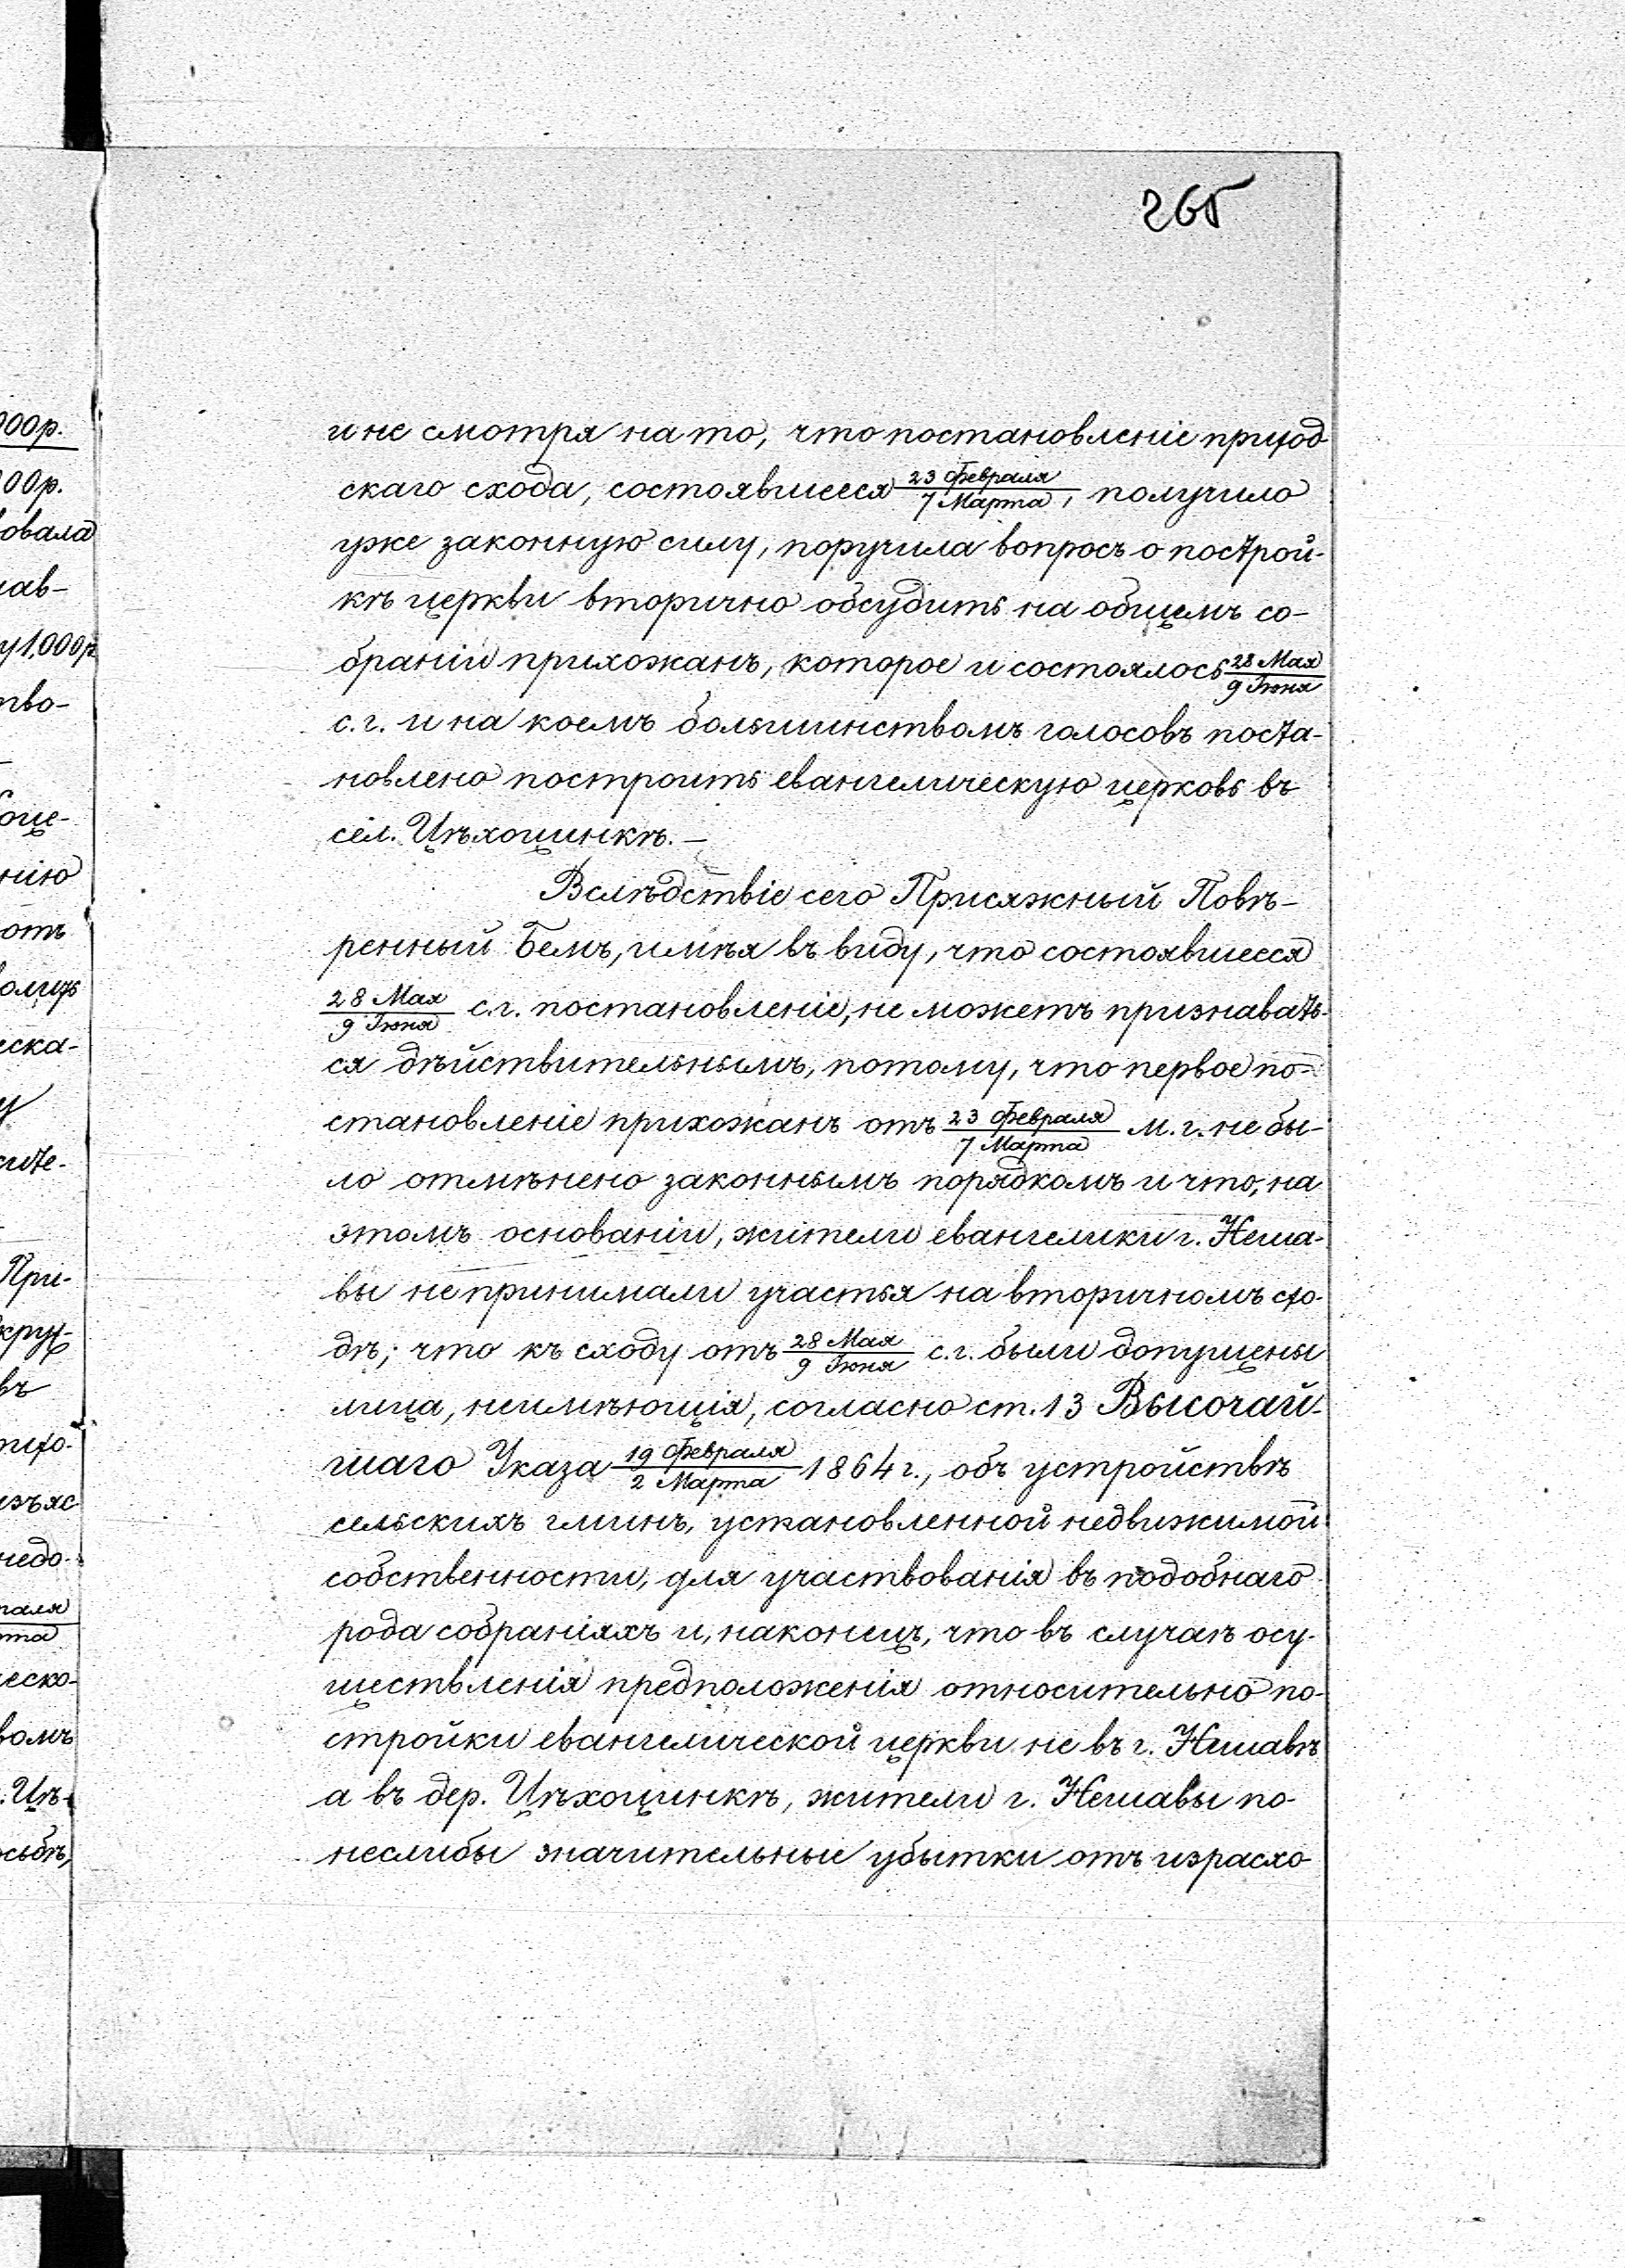 265
и не смотря на то, что постановленіе приход
скаго схода, состоявшееся 23 Февраля/7 Марта, получило
уже законную силу, поручила вопросъ о построй-
кѣ церкви вторично обсудить на общемъ со-
браніи прихожанъ, которое и состоялось 28 Мая/9 Іюня
с.г. и на коемъ большинствомъ голосовъ поста-
новлено построить евангелическую церковь въ
сел. Цѣхоцинкѣ.—
Вслѣдствіе сего Присяжный Повѣ-
ренный Бемъ, имѣя въ виду, что состоявшееся
28 Мая/9 Іюня с.г. постановленіе, не можетъ признавать-
ся дѣйствительнымъ, потому, что первое по-
становленіе прихожанъ отъ 23 Февраля/7 Марта м.г. не бы-
ло отмѣнено законнымъ порядкомъ и что, на
этомъ основаніи, жители евангелики г. Неша-
вы не принимали участья на вторичномъ схо-
дѣ; что къ сходу отъ 28 Мая/9 Іюня с.г. были допущены
лица, неимѣющія, согласно ст. 13 Высочай-
шаго Указа 19 Февраля/2 Марта 1864 г., объ устройствѣ
сельскихъ гминъ, установленной недвижимой
собственности, для участвованія въ подобнаго
рода собраніяхъ и, наконецъ, что въ случаѣ осу-
ществленія предположенія относительно по-
стройки евангелической церкви не въ г. Нешавѣ
а въ дер. Цѣхоцинкѣ, жители г. Нешавы по-
неслибы значительные убытки отъ израсхо
000р.
00р.
овала
ав-
у 1,000р
тво-
още-
нію
отъ
еска-
у
сите-
При-
круж-
въ
тихо-
изъяс
недо-
раля/рта
ческо-
вомъ
. Цѣ-
сьбѣ,